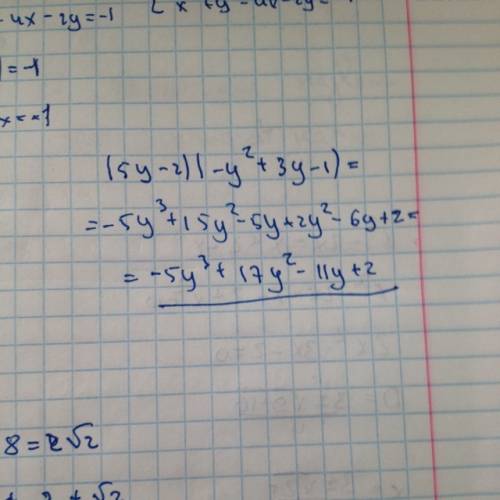 - 4x - 2y = -1
) = -1
x = -1
(5y - 2)(-y² + 3y - 1) =
= -5y³ + 15y² - 5y + 2y² - 6y + 2 =
= -5y³ + 17y² - 11y + 2
8 = 2√2